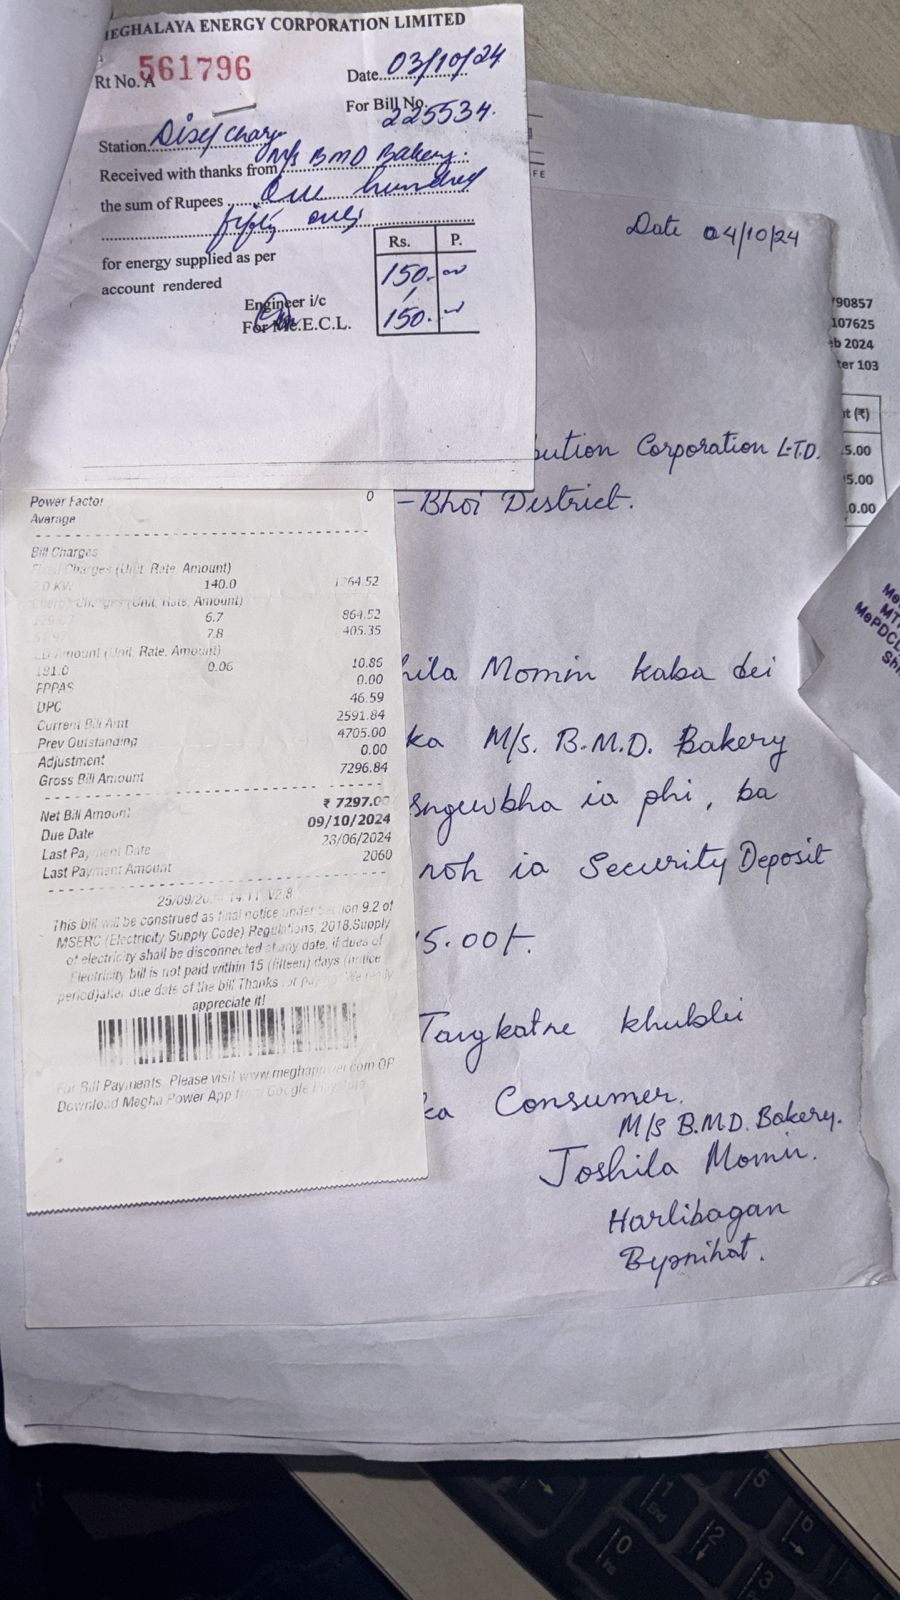 MEGHALAYA ENERGY CORPORATION LIMITED
Rt No. A 561796
Date 03/10/24
For Bill No. 225534.
Station
Received with thanks from M/s BMD Bakery.
the sum of Rupees One hundred
fifty only
for energy supplied as per
account rendered
Rs. P.
150.
150.
Engineer i/c
For Me.E.C.L.
Date 04/10/24
FE
90857
107625
eb 2024
ter 103
t (₹)
5.00
5.00
0.00
bution Corporation LTD.
-Bhoi District.
hila Momin kaba dei
ka M/s. B.M.D. Bakery
sngewbha ia phi, ba
noh ia Security Deposit
5.00/-.
khublei
ka Consumer.
M/S B.M.D. Bakery.
Joshila Momin.
Harlibagan
Byrnihat.
Power Factor 0
Average
Bill Charges
Fixed Charges (Unit, Rate, Amount)
140.0
Energy Charges (Unit, Rate, Amount)
6.7 864.52
7.8 405.35
ED Amount (Unit, Rate, Amount)
181.0 0.06 10.86
FPPAS 0.00
DPC 46.59
Current Bill Amt 2591.84
Prev Outstanding 4705.00
Adjustment 0.00
Gross Bill Amount 7296.84
Net Bill Amount ₹ 7297.00
Due Date 09/10/2024
Last Payment Date 28/06/2024
Last Payment Amount 2060
V2.8
This bill will be construed as final notice under Section 9.2 of
MSERC (Electricity Supply Code) Regulations, 2018.Supply
of electricity shall be disconnected at any date, if dues of
Electricity bill is not paid within 15 (fifteen) days (notice
period)after due date of the bill.Thanks for
appreciate it!
For Bill Payments, Please visit www.meghapower.com OR
Download Megha Power App from Google
MePDCL